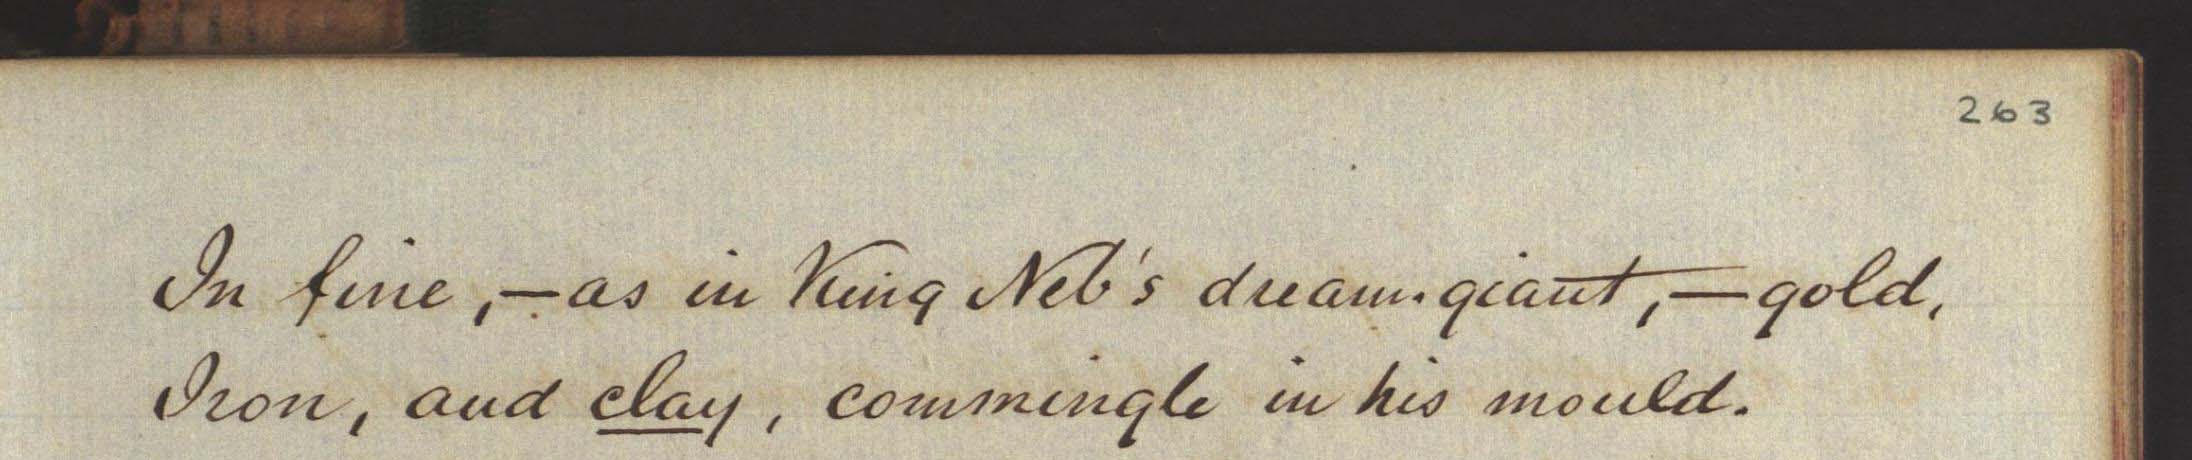 263
In fine,—as in King Neb's dream-giant,—gold,
Iron, and clay, commingle in his mould.